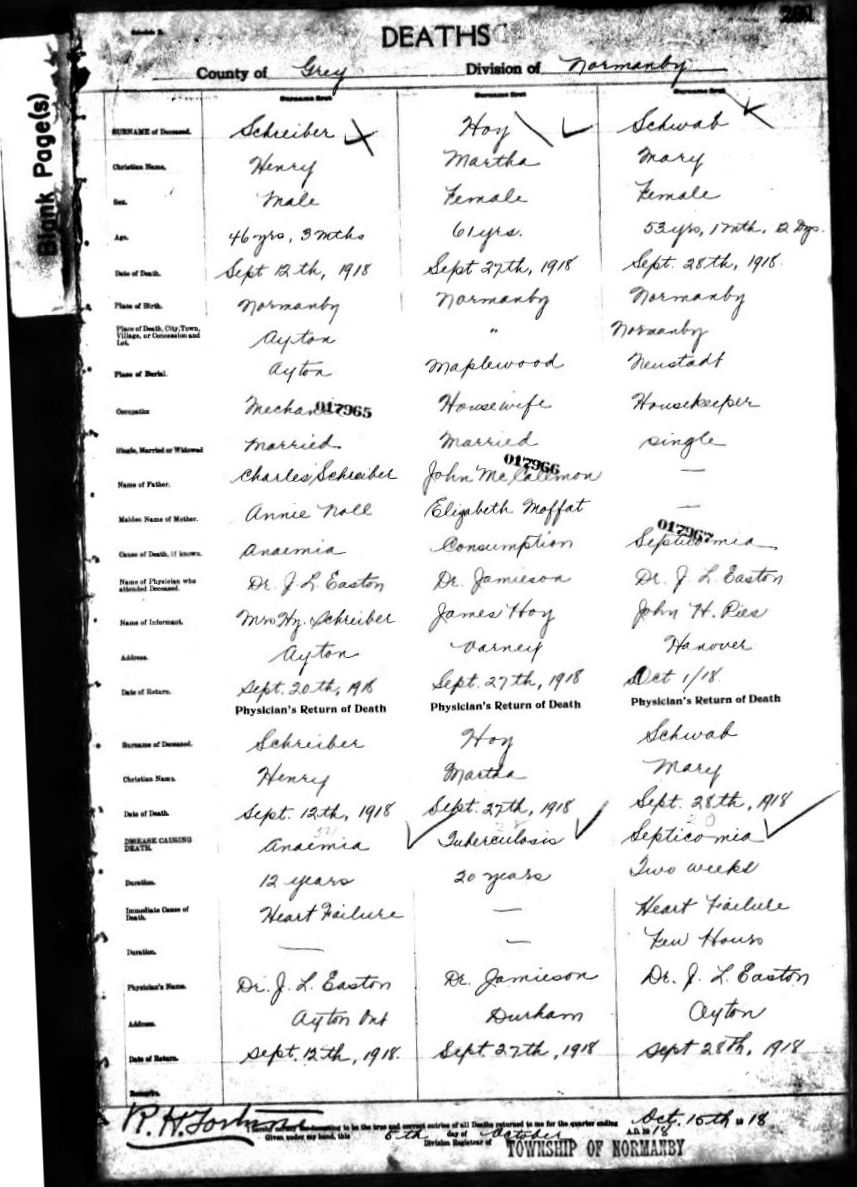 Blank Page(s)
DEATHS
County of Grey Division of Normanby
Surname first Surname first Surname first
SURNAME of Deceased. Schreiber Hoy Schwab
Christian Name. Henry Martha Mary
Sex. Male Female Female
Age. 46 yrs, 3 mths 61 yrs. 53 yrs, 1 mth, 12 Dys.
Date of Death. Sept 12th, 1918 Sept 27th, 1918 Sept. 28th, 1918.
Place of Birth. Normanby Normanby Normanby
Place of Death, City, Town, Village, or Concession and Lot. Ayton " Normanby
Place of Burial. Ayton Maplewood Neustadt
Occupation Mechanic 017965 Housewife Housekeeper
Single, Married or Widowed Married Married single
017966
Name of Father. Charles Schreiber John McCalemon —
Maiden Name of Mother. Annie Noll Elizabeth Moffat —
017967
Cause of Death, if known. Anaemia Consumption Septicomia
Name of Physician who attended Deceased. Dr. J. L. Easton Dr. Jamieson Dr. J. L. Easton
Name of Informant. Mrs Hy. Schreiber James Hoy John H. Ries
Address. Ayton Varney Hanover
Date of Return. Sept. 20th, 1918 Sept. 27th, 1918 Oct 1/18.
Physician's Return of Death Physician's Return of Death Physician's Return of Death
Surname of Deceased. Schreiber Hoy Schwab
Christian Name. Henry Martha Mary
Date of Death. Sept. 12th, 1918 Sept. 27th, 1918 Sept. 28th, 1918
DISEASE CAUSING DEATH. Anaemia Tuberculosis Septicomia
Duration. 12 years 20 years Two weeks
Immediate Cause of Death. Heart Failure — Heart Failure
Duration. — — Few Hours
Physician's Name. Dr. J. L. Easton Dr. Jamieson Dr. J. L. Easton
Address. Ayton Ont Durham Ayton
Date of Return. Sept. 12th, 1918. Sept. 27th, 1918 Sept 28th, 1918
Remarks.
R. H. to be the true and correct entries of all Deaths returned to me for the quarter ending Oct. 15th 1918
Given under my hand, this 5th day of October A.D. 1918
Division Registrar of TOWNSHIP OF NORMANBY